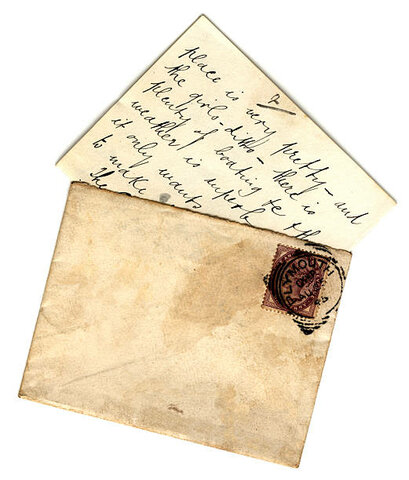 2
place is very pretty - and
the girls - ditto - there is
plenty of boating &c th
weather is superb
it only wants
to make
the
PLYMOUTH